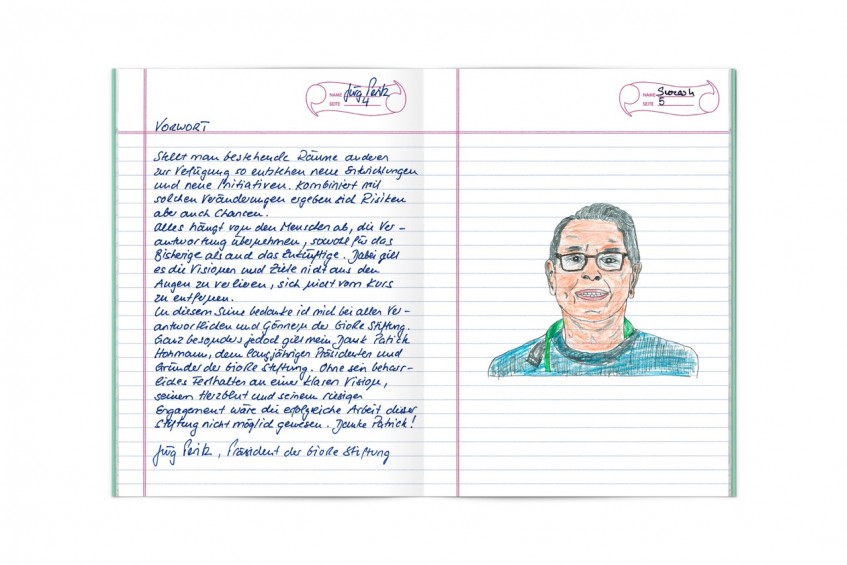 NAME Jürg Peritz
SEITE 4
VORWORT
Stellt man bestehende Räume anderen
zur Verfügung so entstehen neue Entwicklungen
und neue Initiativen. Kombiniert mit
solchen Veränderungen ergeben sich Risiken
aber auch Chancen.
Alles hängt von den Menschen ab, die Ver-
antwortung übernehmen, sowohl für das
Bisherige als auch das Zukünftige. Dabei gilt
es die Visionen und Ziele nicht aus den
Augen zu verlieren, sich nicht vom Kurs
zu entfernen.
In diesem Sinne bedanke ich mich bei allen Ver-
antwortlichen und Gönnern der bioRe Stiftung.
Ganz besonders jedoch gilt mein Dank Patrick
Hohmann, dem langjährigen Präsidenten und
Gründer der bioRe Stiftung. Ohne sein beharr-
liches Festhalten an einer klaren Vision,
seinem Herzblut und seinem riesigen
Engagement wäre die erfolgreiche Arbeit dieser
Stiftung nicht möglich gewesen. Danke Patrick!
Jürg Peritz, Präsident der bioRe Stiftung
NAME
SEITE 5